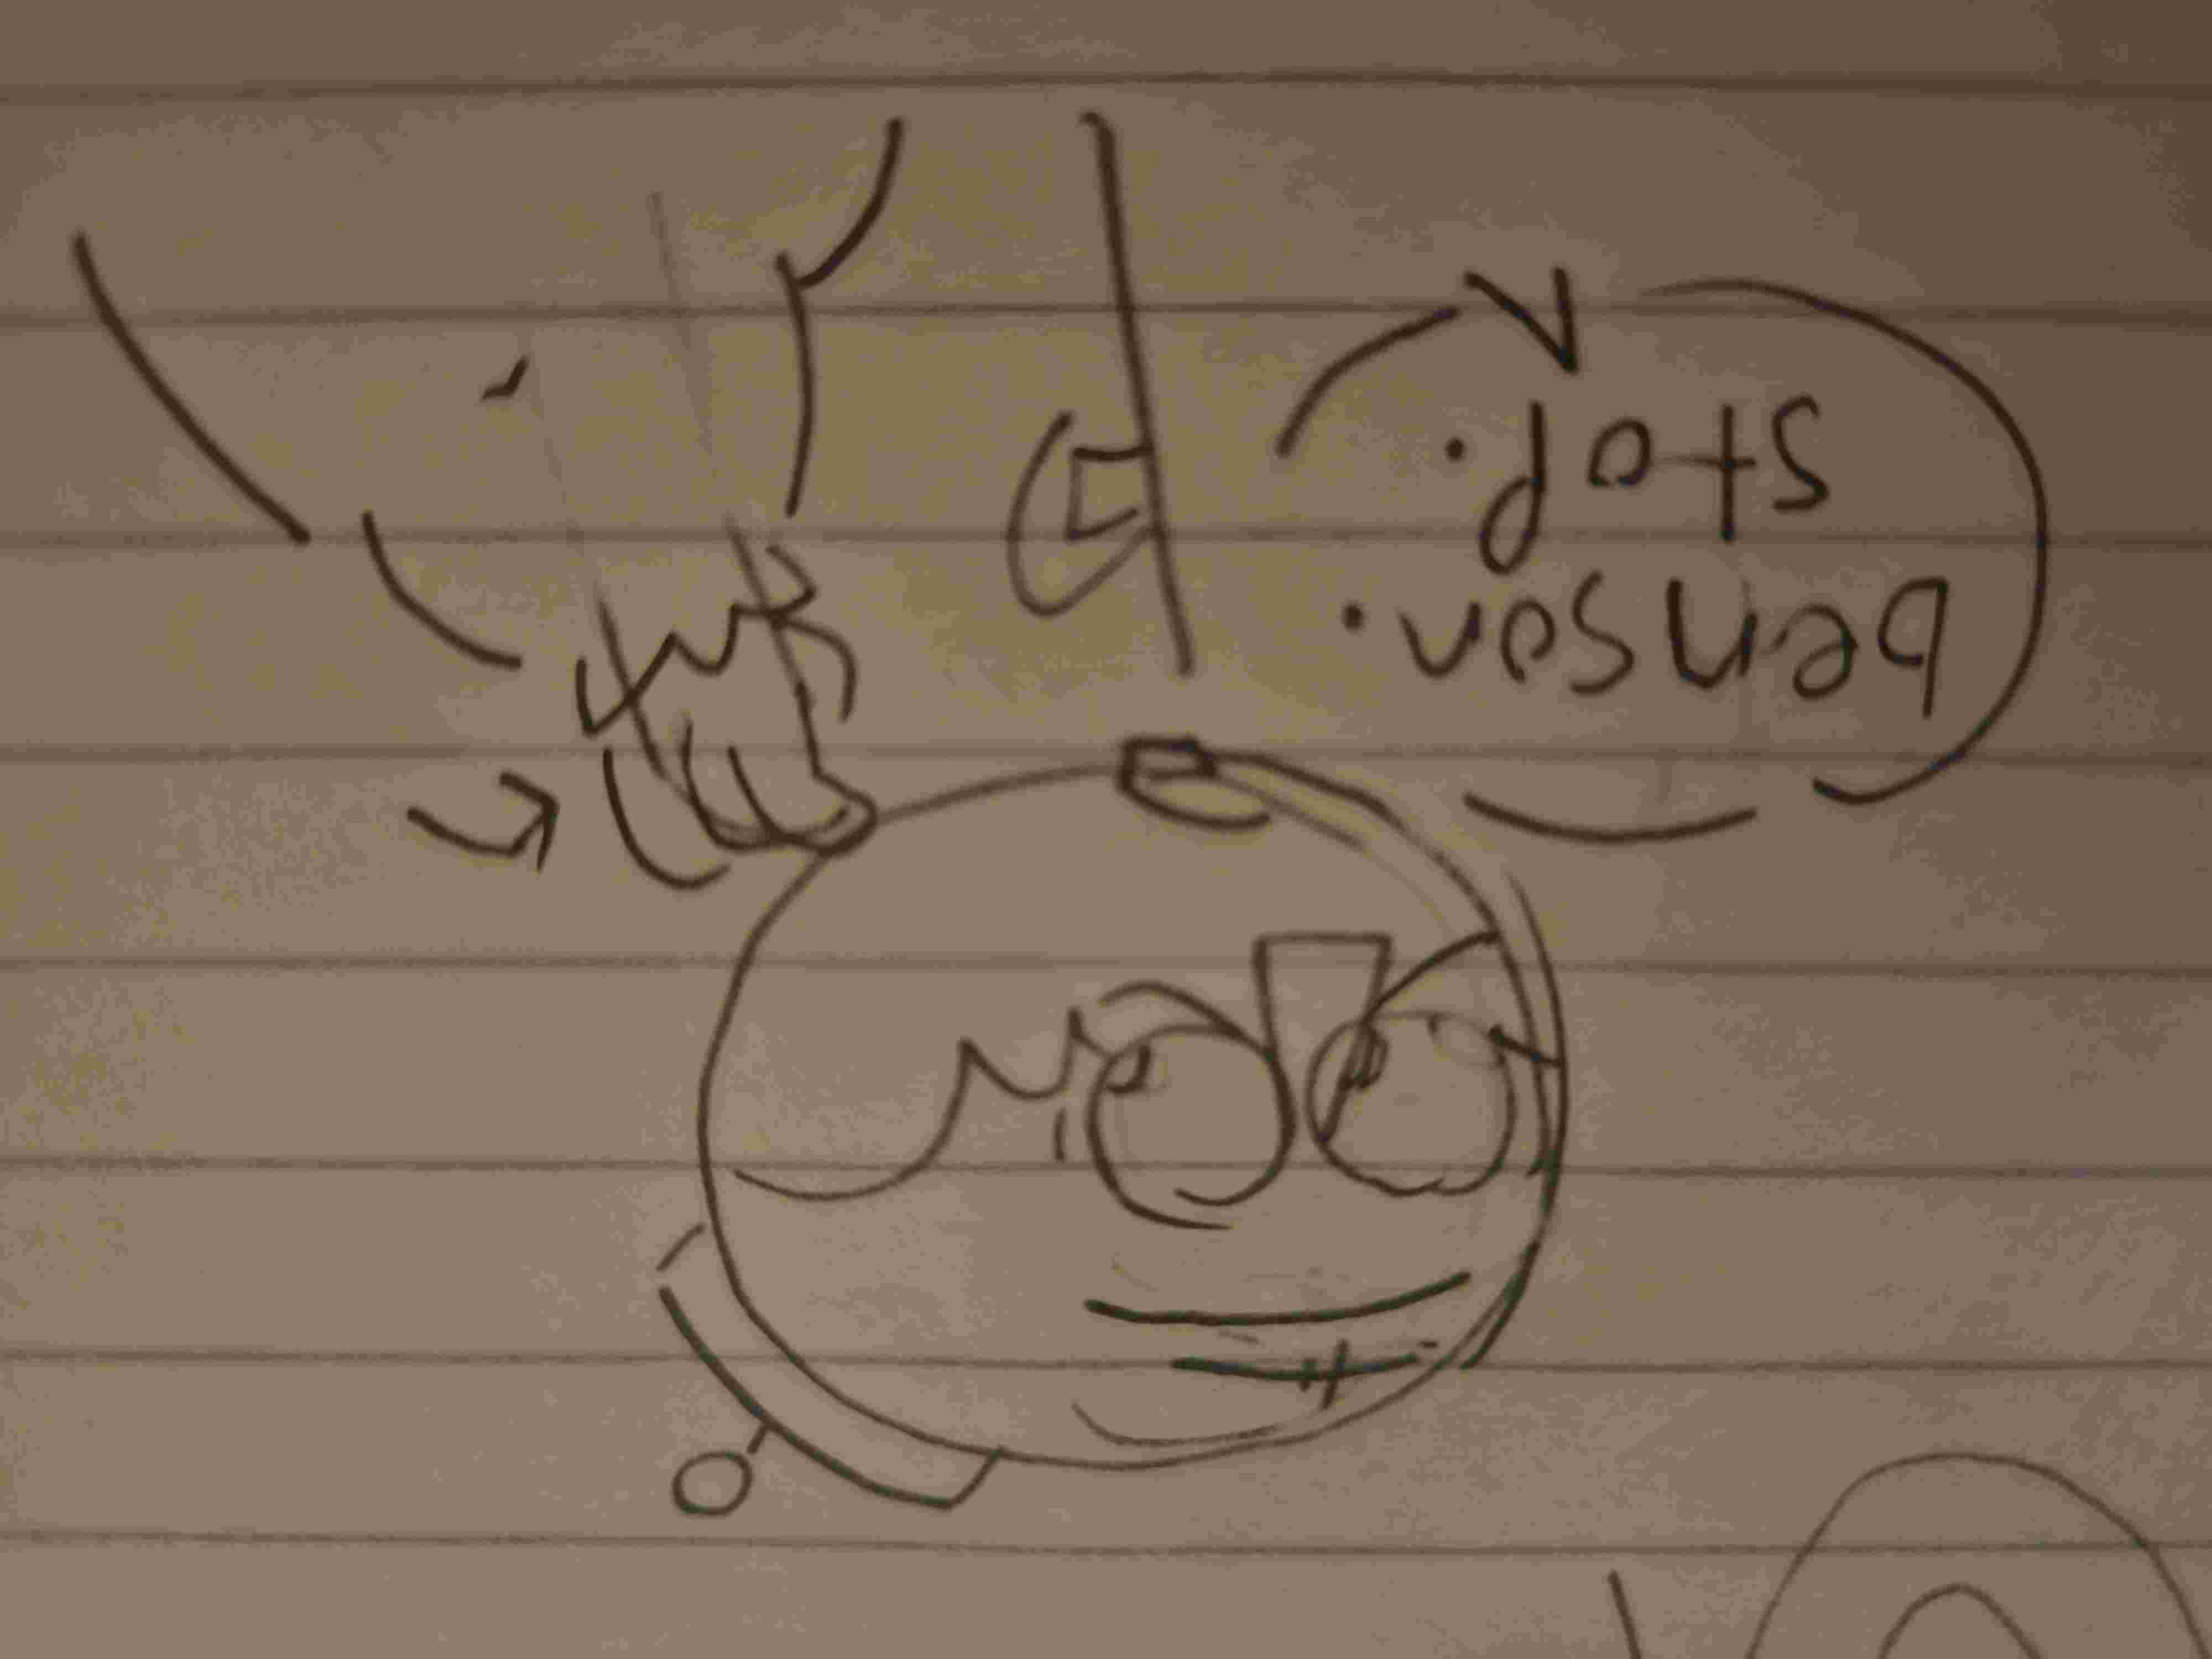 benson.
stop.